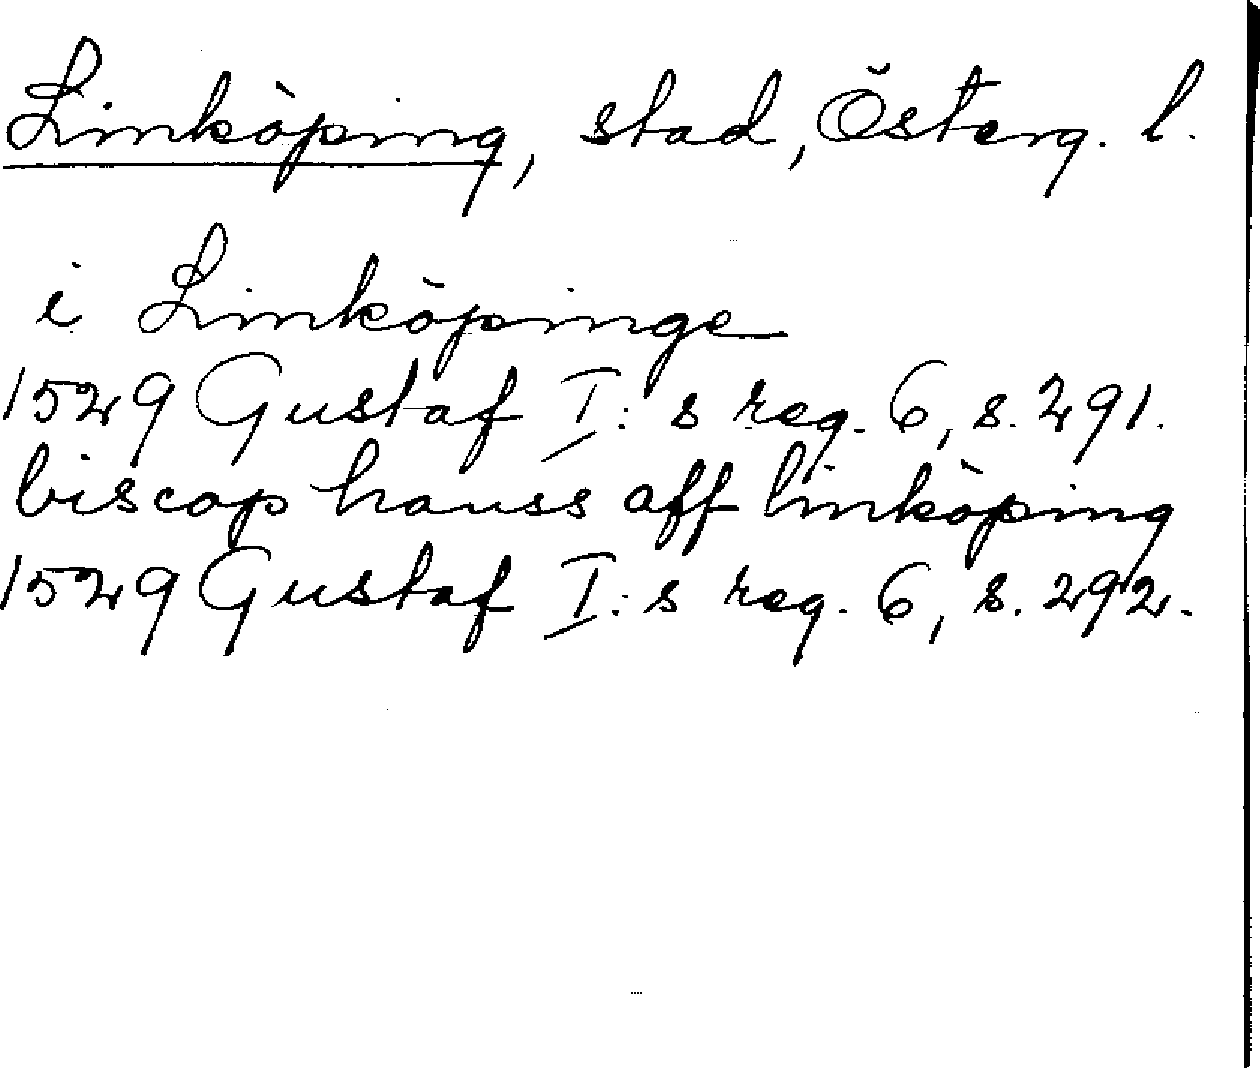 Linköping, stad, Österg. l.
i Linköpinge
1529 Gustaf I:s reg. 6, s. 291.
biscop hanss aff linköping
1529 Gustaf I:s reg. 6, s. 292.